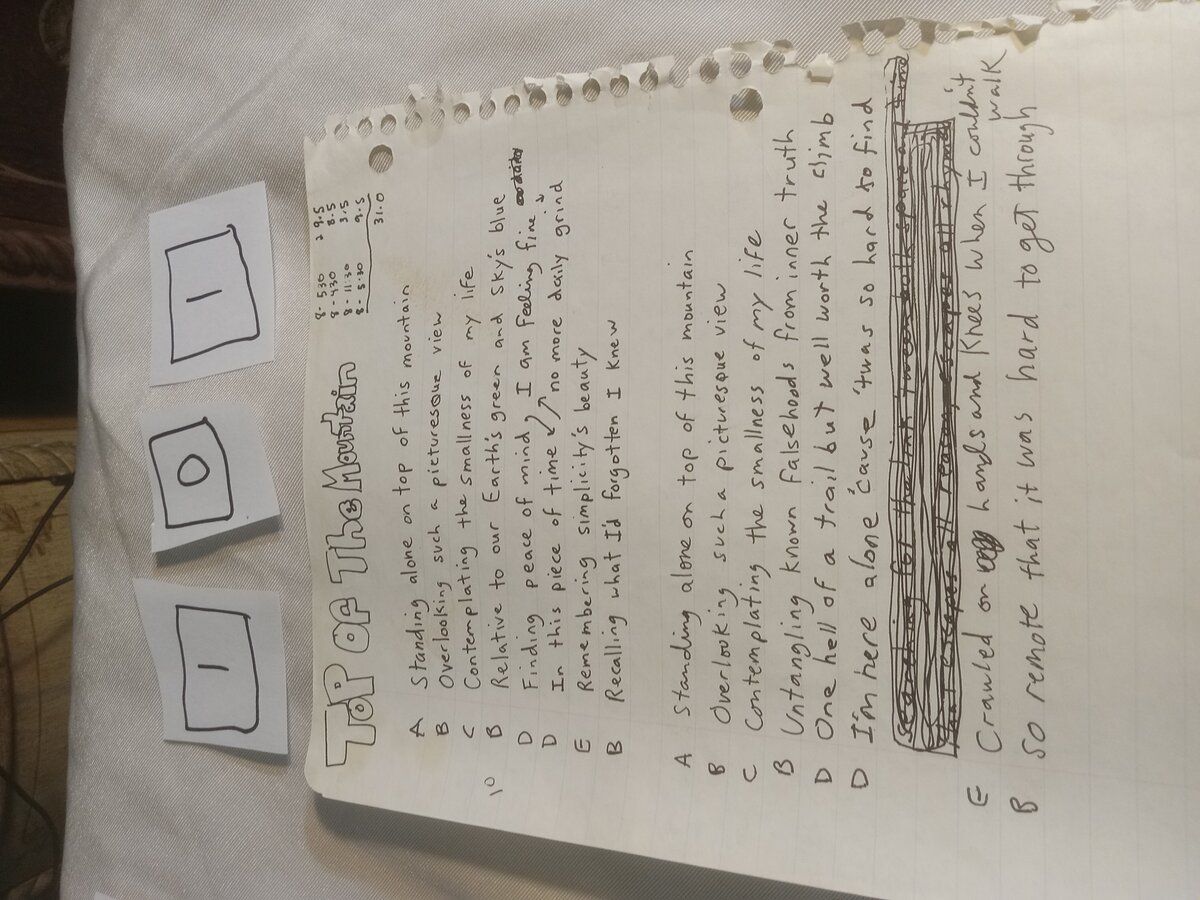 1 0 1
8-530 9.5
8-430 8.5
8-11:30 3.5
8-5:30 9.5
31.0
ToP OF The Mountain
A Standing alone on top of this mountain
B Overlooking such a picturesque view
C Contemplating the smallness of my life
10 B Relative to our Earth's green and sky's blue
D Finding peace of mind, I am feeling fine
D In this piece of time no more daily grind
E Remembering simplicity's beauty
B Realling what I'd forgotten I knew
A Standing alone on top of this mountain
B Overlooking such a picturesque view
C Contemplating the smallness of my life
B Untangling known falsehoods from inner truth
D One hell of a trail but well worth the climb
D I'm here alone 'cause 'twas so hard to find
Searching for the link space and time
that escapes all reason, escapes all rhyme
E Crawled on hands and knees when I couldn't walk
B so remote that it was hard to get through